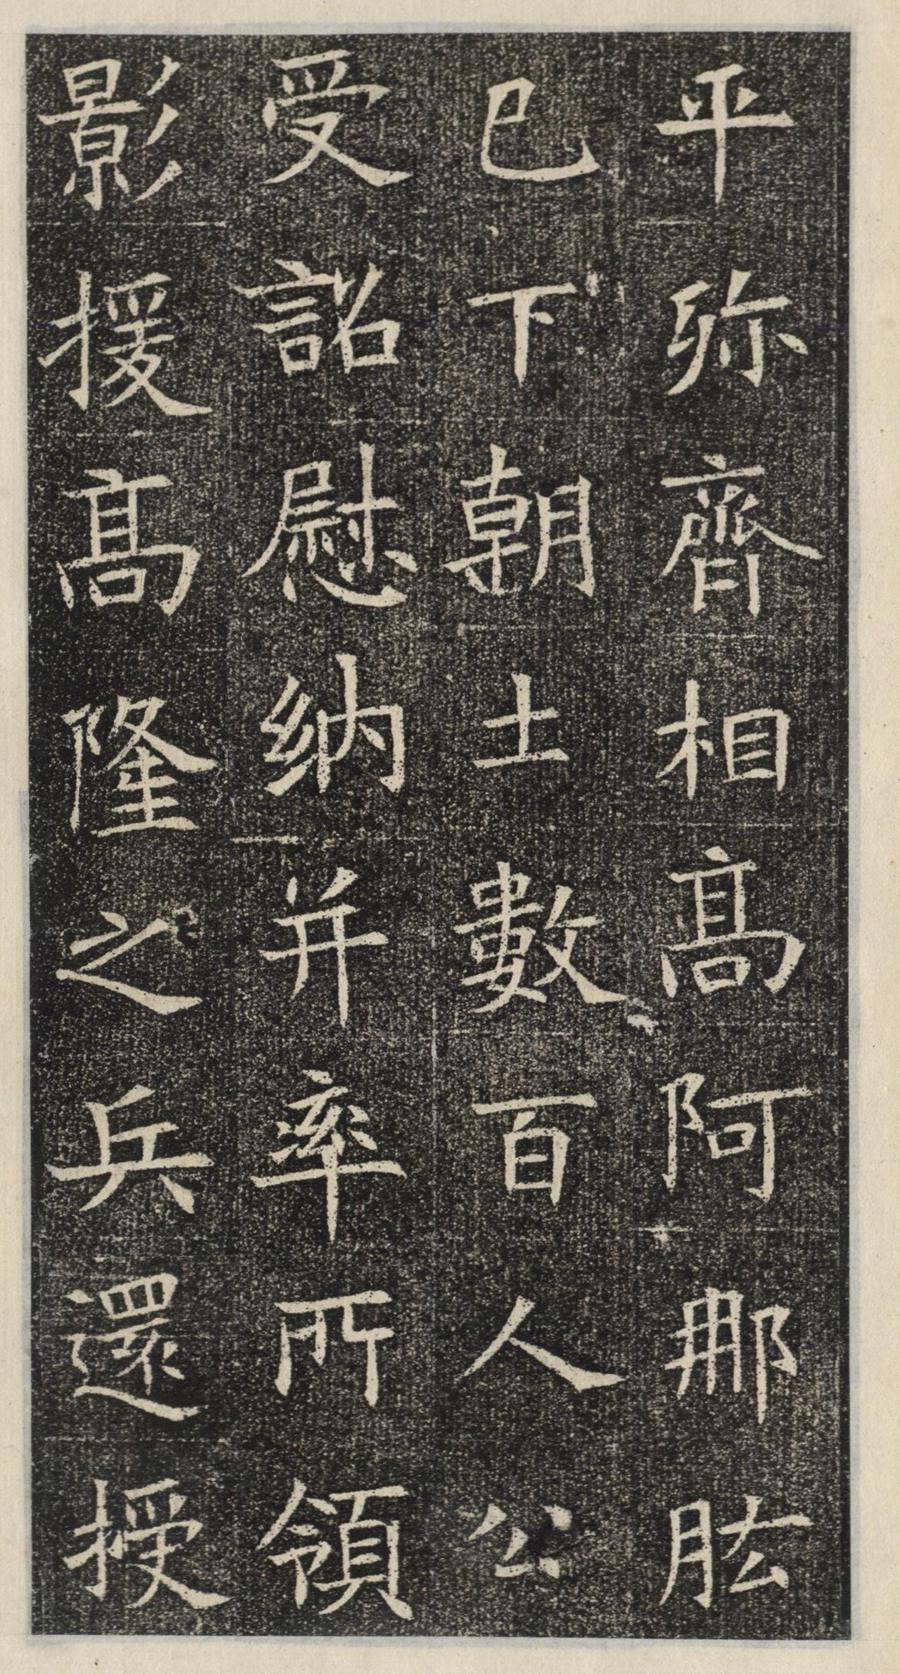 平弥齊相高阿那肱
已下朝士數百人公
受詔慰納并率所領
影援高隆之兵還授